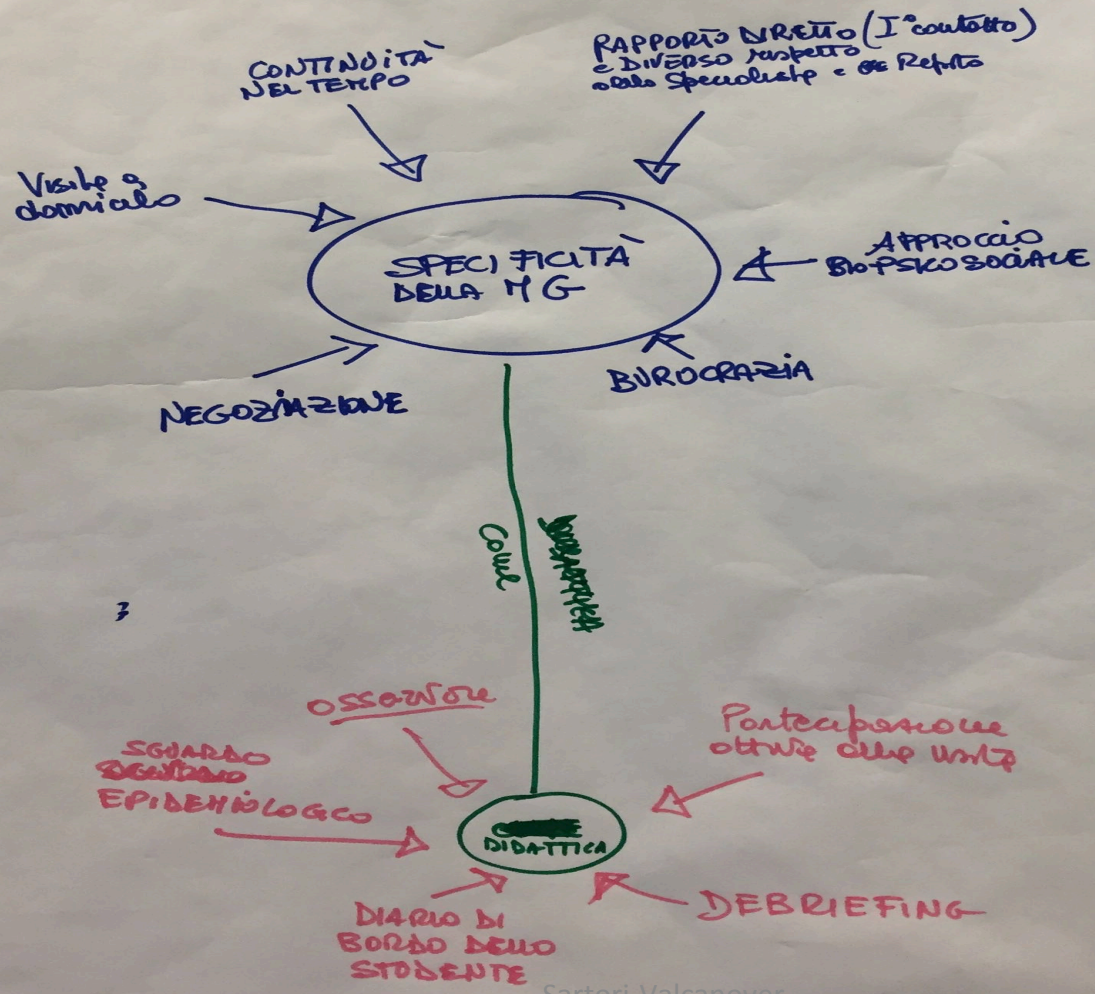 CONTINUITÀ
NEL TEMPO
RAPPORTO DIRETTO (I° contatto)
e DIVERSO rispetto
allo Specialista e Reparto
Visite a
domicilio
SPECIFICITÀ
DELLA MG
APPROCCIO
BIOPSICOSOCIALE
NEGOZIAZIONE
BUROCRAZIA
Come
OSSERVATORE
Partecipazione
attiva alle visite
SGUARDO
EPIDEMIOLOGICO
DIDATTICA
DIARIO DI
BORDO DELLO
STUDENTE
DEBRIEFING
Sartori Valcanover